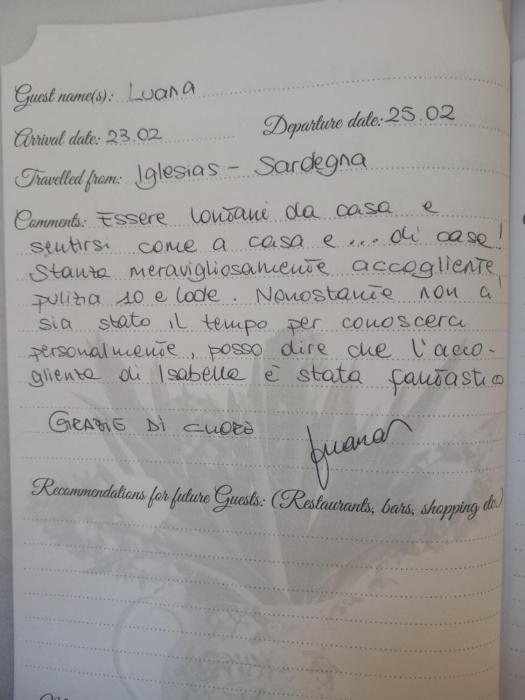 Guest name(s): Luana
Arrival date: 23.02 Departure date: 25.02
Travelled from: Iglesias - Sardegna
Comments: Essere lontani da casa e
sentirsi come a casa e ... di casa!
Stanza meravigliosamente accogliente,
pulizia 10 e lode. Nonostante non ci
sia stato il tempo per conoscerci
personalmente, posso dire che l'acco-
glienza di Isabelle è stata fantastica
GRAZIE DI CUORE
Luana
Recommendations for future Guests: (Restaurants, bars, shopping etc.)